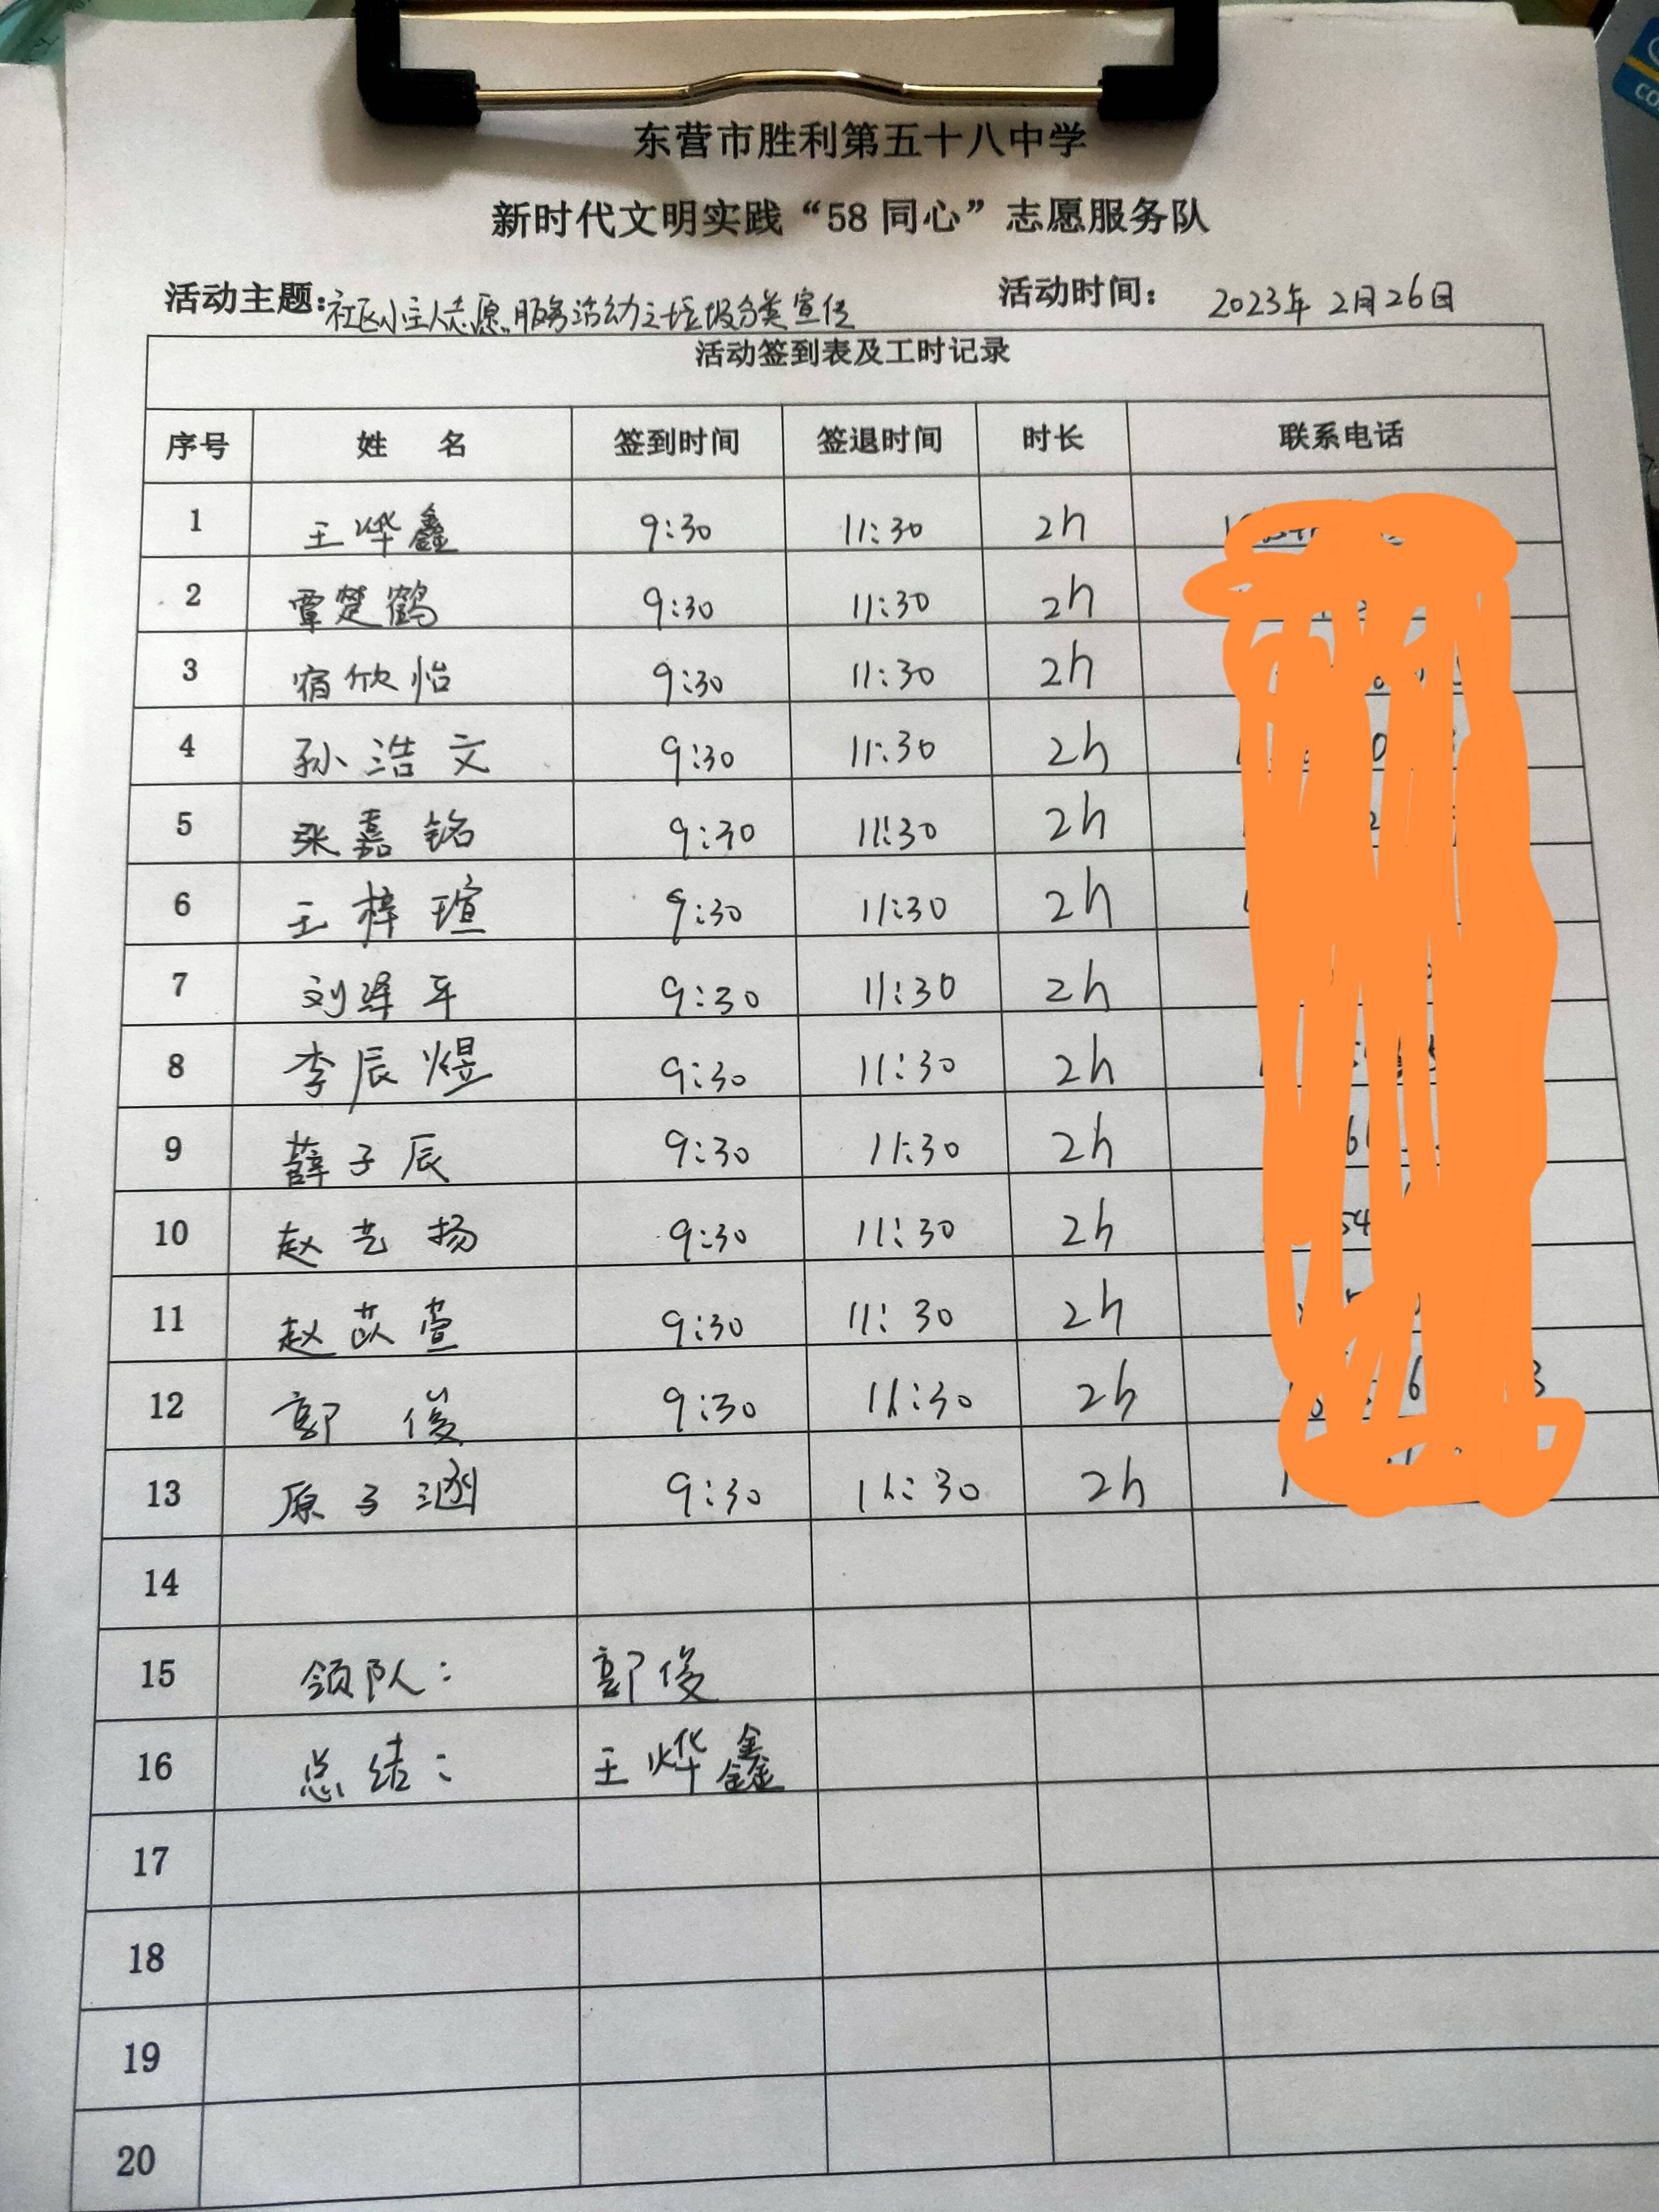 东营市胜利第五十八中学
新时代文明实践“58同心”志愿服务队
活动主题:社区小主人志愿服务活动之垃圾分类宣传 活动时间: 2023年2月26日
活动签到表及工时记录
序号 姓 名 签到时间 签退时间 时长 联系电话
1 王烨鑫 9:30 11:30 2h
2 覃楚鹤 9:30 11:30 2h
3 宿欣怡 9:30 11:30 2h
4 孙浩文 9:30 11:30 2h
5 张嘉铭 9:30 11:30 2h
6 王梓瑄 9:30 11:30 2h
7 刘泽平 9:30 11:30 2h
8 李辰煜 9:30 11:30 2h
9 薛子辰 9:30 11:30 2h
10 赵艺扬 9:30 11:30 2h
11 赵苡萱 9:30 11:30 2h
12 郭俊 9:30 11:30 2h
13 原子涵 9:30 11:30 2h
14
15 领队: 郭俊
16 总结: 王烨鑫
17
18
19
20